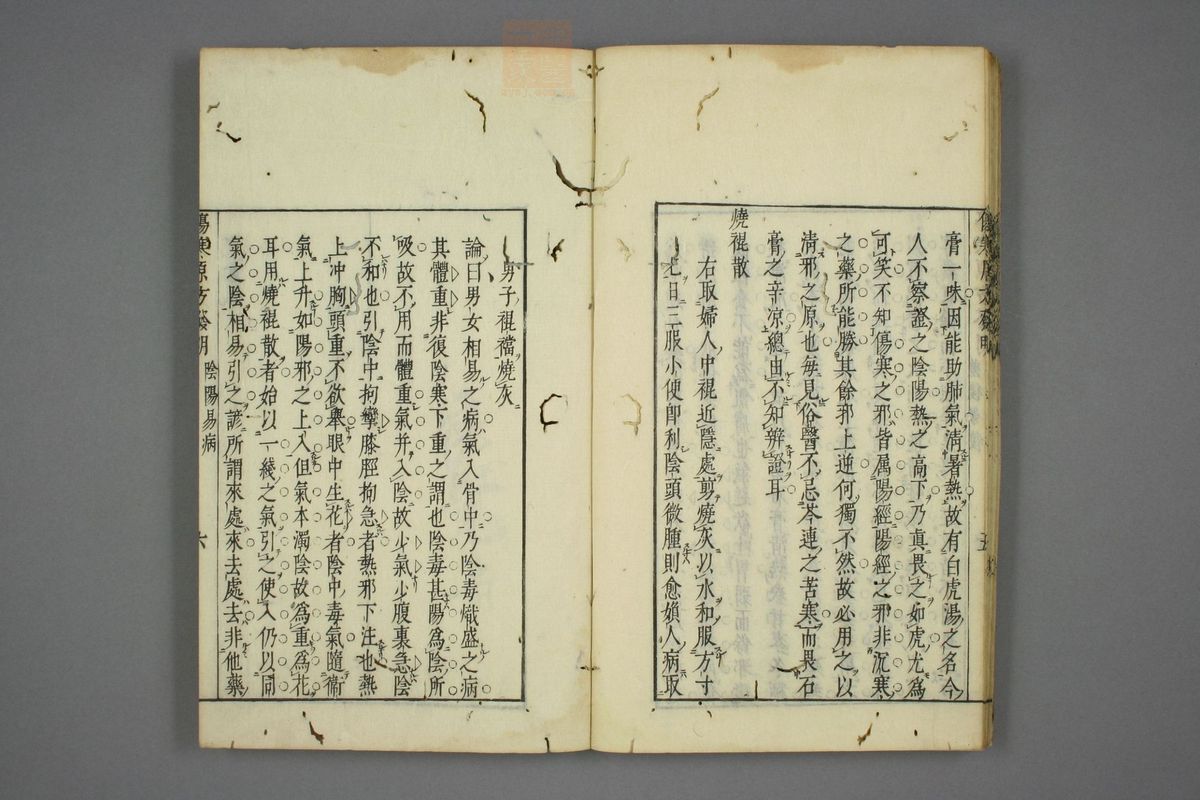 膏一味因能助肺氣淸暑熱故有白虎湯之名今
人不察證之陰陽熱之高下乃眞畏之如虎尤爲
可笑不知傷寒之邪皆属陽經陽經之邪非沉寒
之藥所能勝其餘邪上逆何獨不然故必用之以
淸邪之原也每見俗醫不忌芩連之苦寒而畏石
膏之辛凉總由不知辨證耳
燒裩散
右取婦人中裩近隱處剪燒灰以水和服方寸
七日三服小便卽利陰頭微腫則愈婦人病取
男子裩襠燒灰
論曰男女相易之病氣入骨中乃陰毒熾盛之病
其體重非復陰寒下重之謂也陰毒甚陽爲陰所
吸故不用而體重氣并入陰故少氣少腹裏急陰
不和也引陰中拘攣膝脛拘急者熱邪下注也熱
上冲胸頭重不欲舉眼中生花者陰中毒氣隨衞
氣上升如陽邪之上入但氣本濁陰故爲重爲花
耳用燒裩散者始以一綫之氣引之使入仍以同
氣之陰相易引之諺所謂來處來去處去非他藥
傷寒原方發明
陰陽易病
六